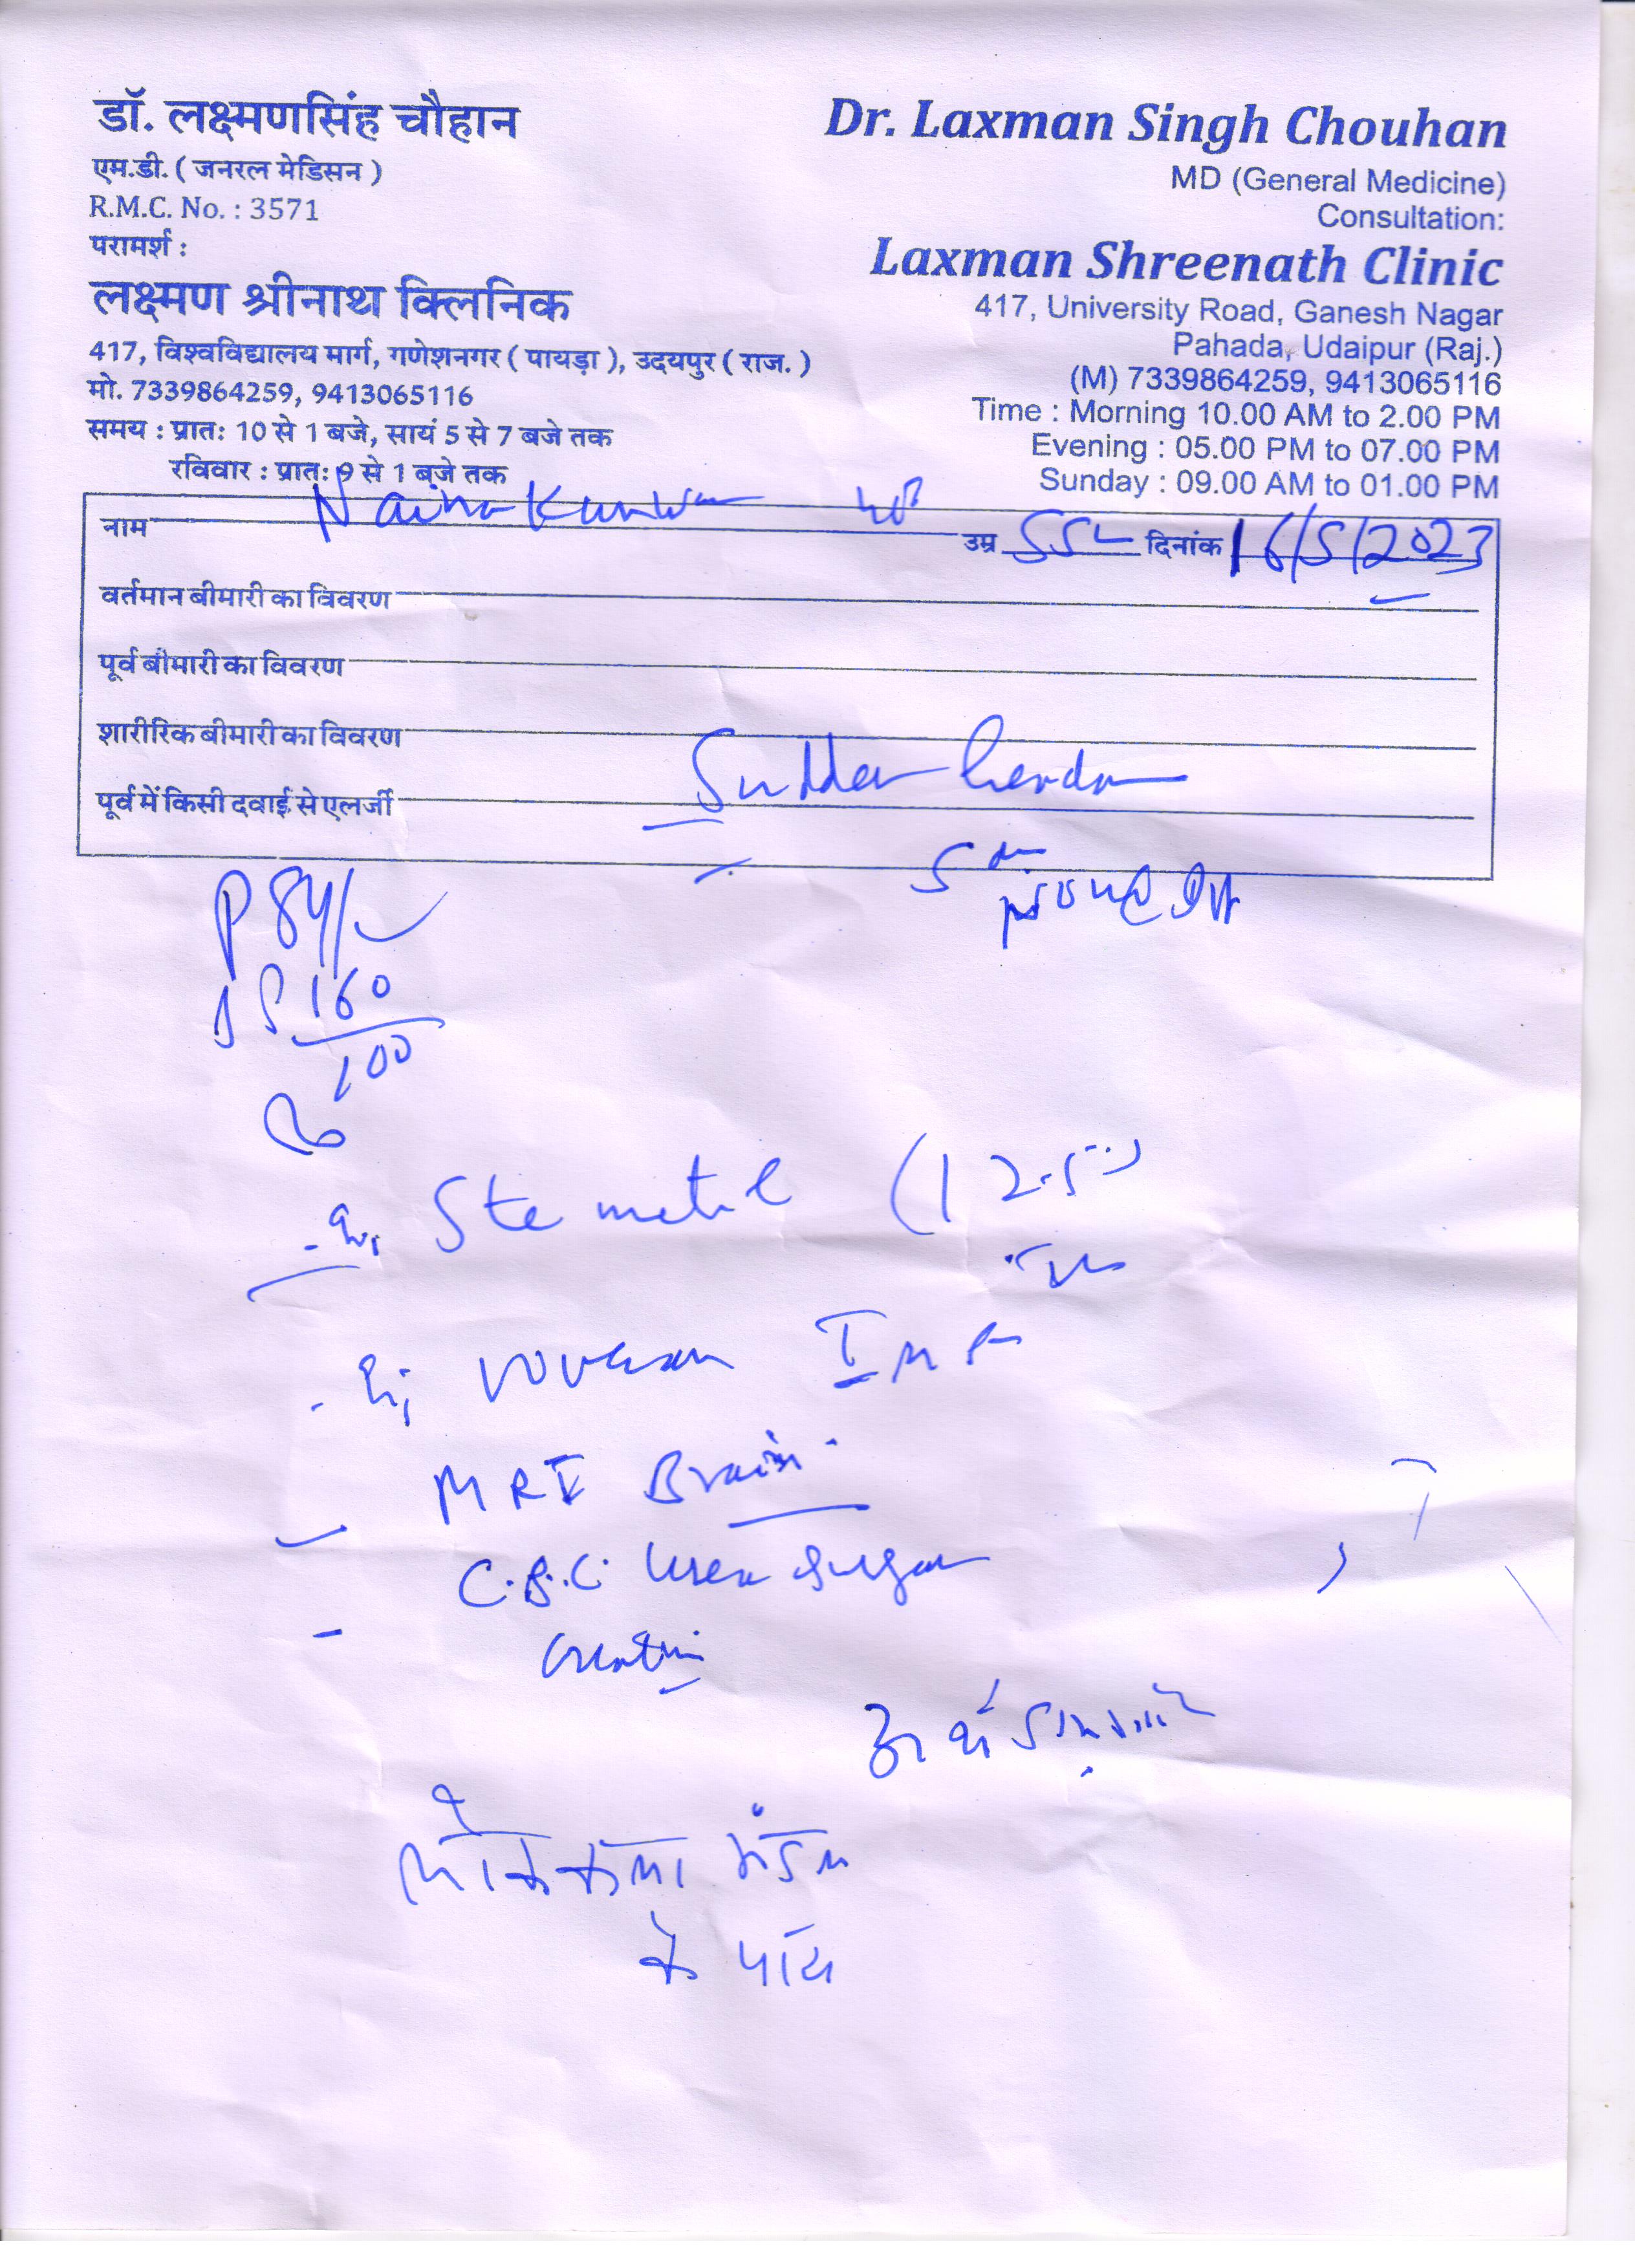 डॉ. लक्ष्मणसिंह चौहान
एम.डी. ( जनरल मेडिसन )
R.M.C. No. : 3571
परामर्श :
लक्ष्मण श्रीनाथ क्लिनिक
417, विश्वविद्यालय मार्ग, गणेशनगर ( पायड़ा ), उदयपुर ( राज. )
मो. 7339864259, 9413065116
समय : प्रातः 10 से 1 बजे, सायं 5 से 7 बजे तक
रविवार : प्रातः 9 से 1 बजे तक
Dr. Laxman Singh Chouhan
MD (General Medicine)
Consultation:
Laxman Shreenath Clinic
417, University Road, Ganesh Nagar
Pahada, Udaipur (Raj.)
(M) 7339864259, 9413065116
Time : Morning 10.00 AM to 2.00 PM
Evening : 05.00 PM to 07.00 PM
Sunday : 09.00 AM to 01.00 PM
नाम Naina Kunwar उम्र 55 दिनांक 16/5/2023
वर्तमान बीमारी का विवरण
पूर्व बीमारी का विवरण
शारीरिक बीमारी का विवरण
Sudden
पूर्व में किसी दवाई से एलर्जी
P 84/
160
100
Stemetil (12.5)
Voveran
MRI Brain
C.B.C. Urea Sugar
मेडम
के पास